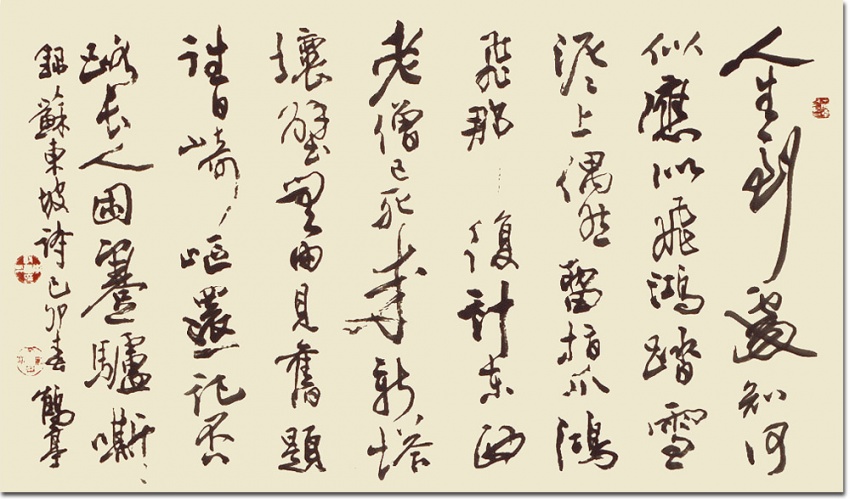 人生到處知何
似應似飛鴻踏雪
泥〻上偶然留指爪鴻
飛那復計東西
老僧已死成新塔
壞壁無由見舊題
往日崎嶇還記否
路長人困蹇驢嘶
錄蘇東坡詩己卯春鶴亭